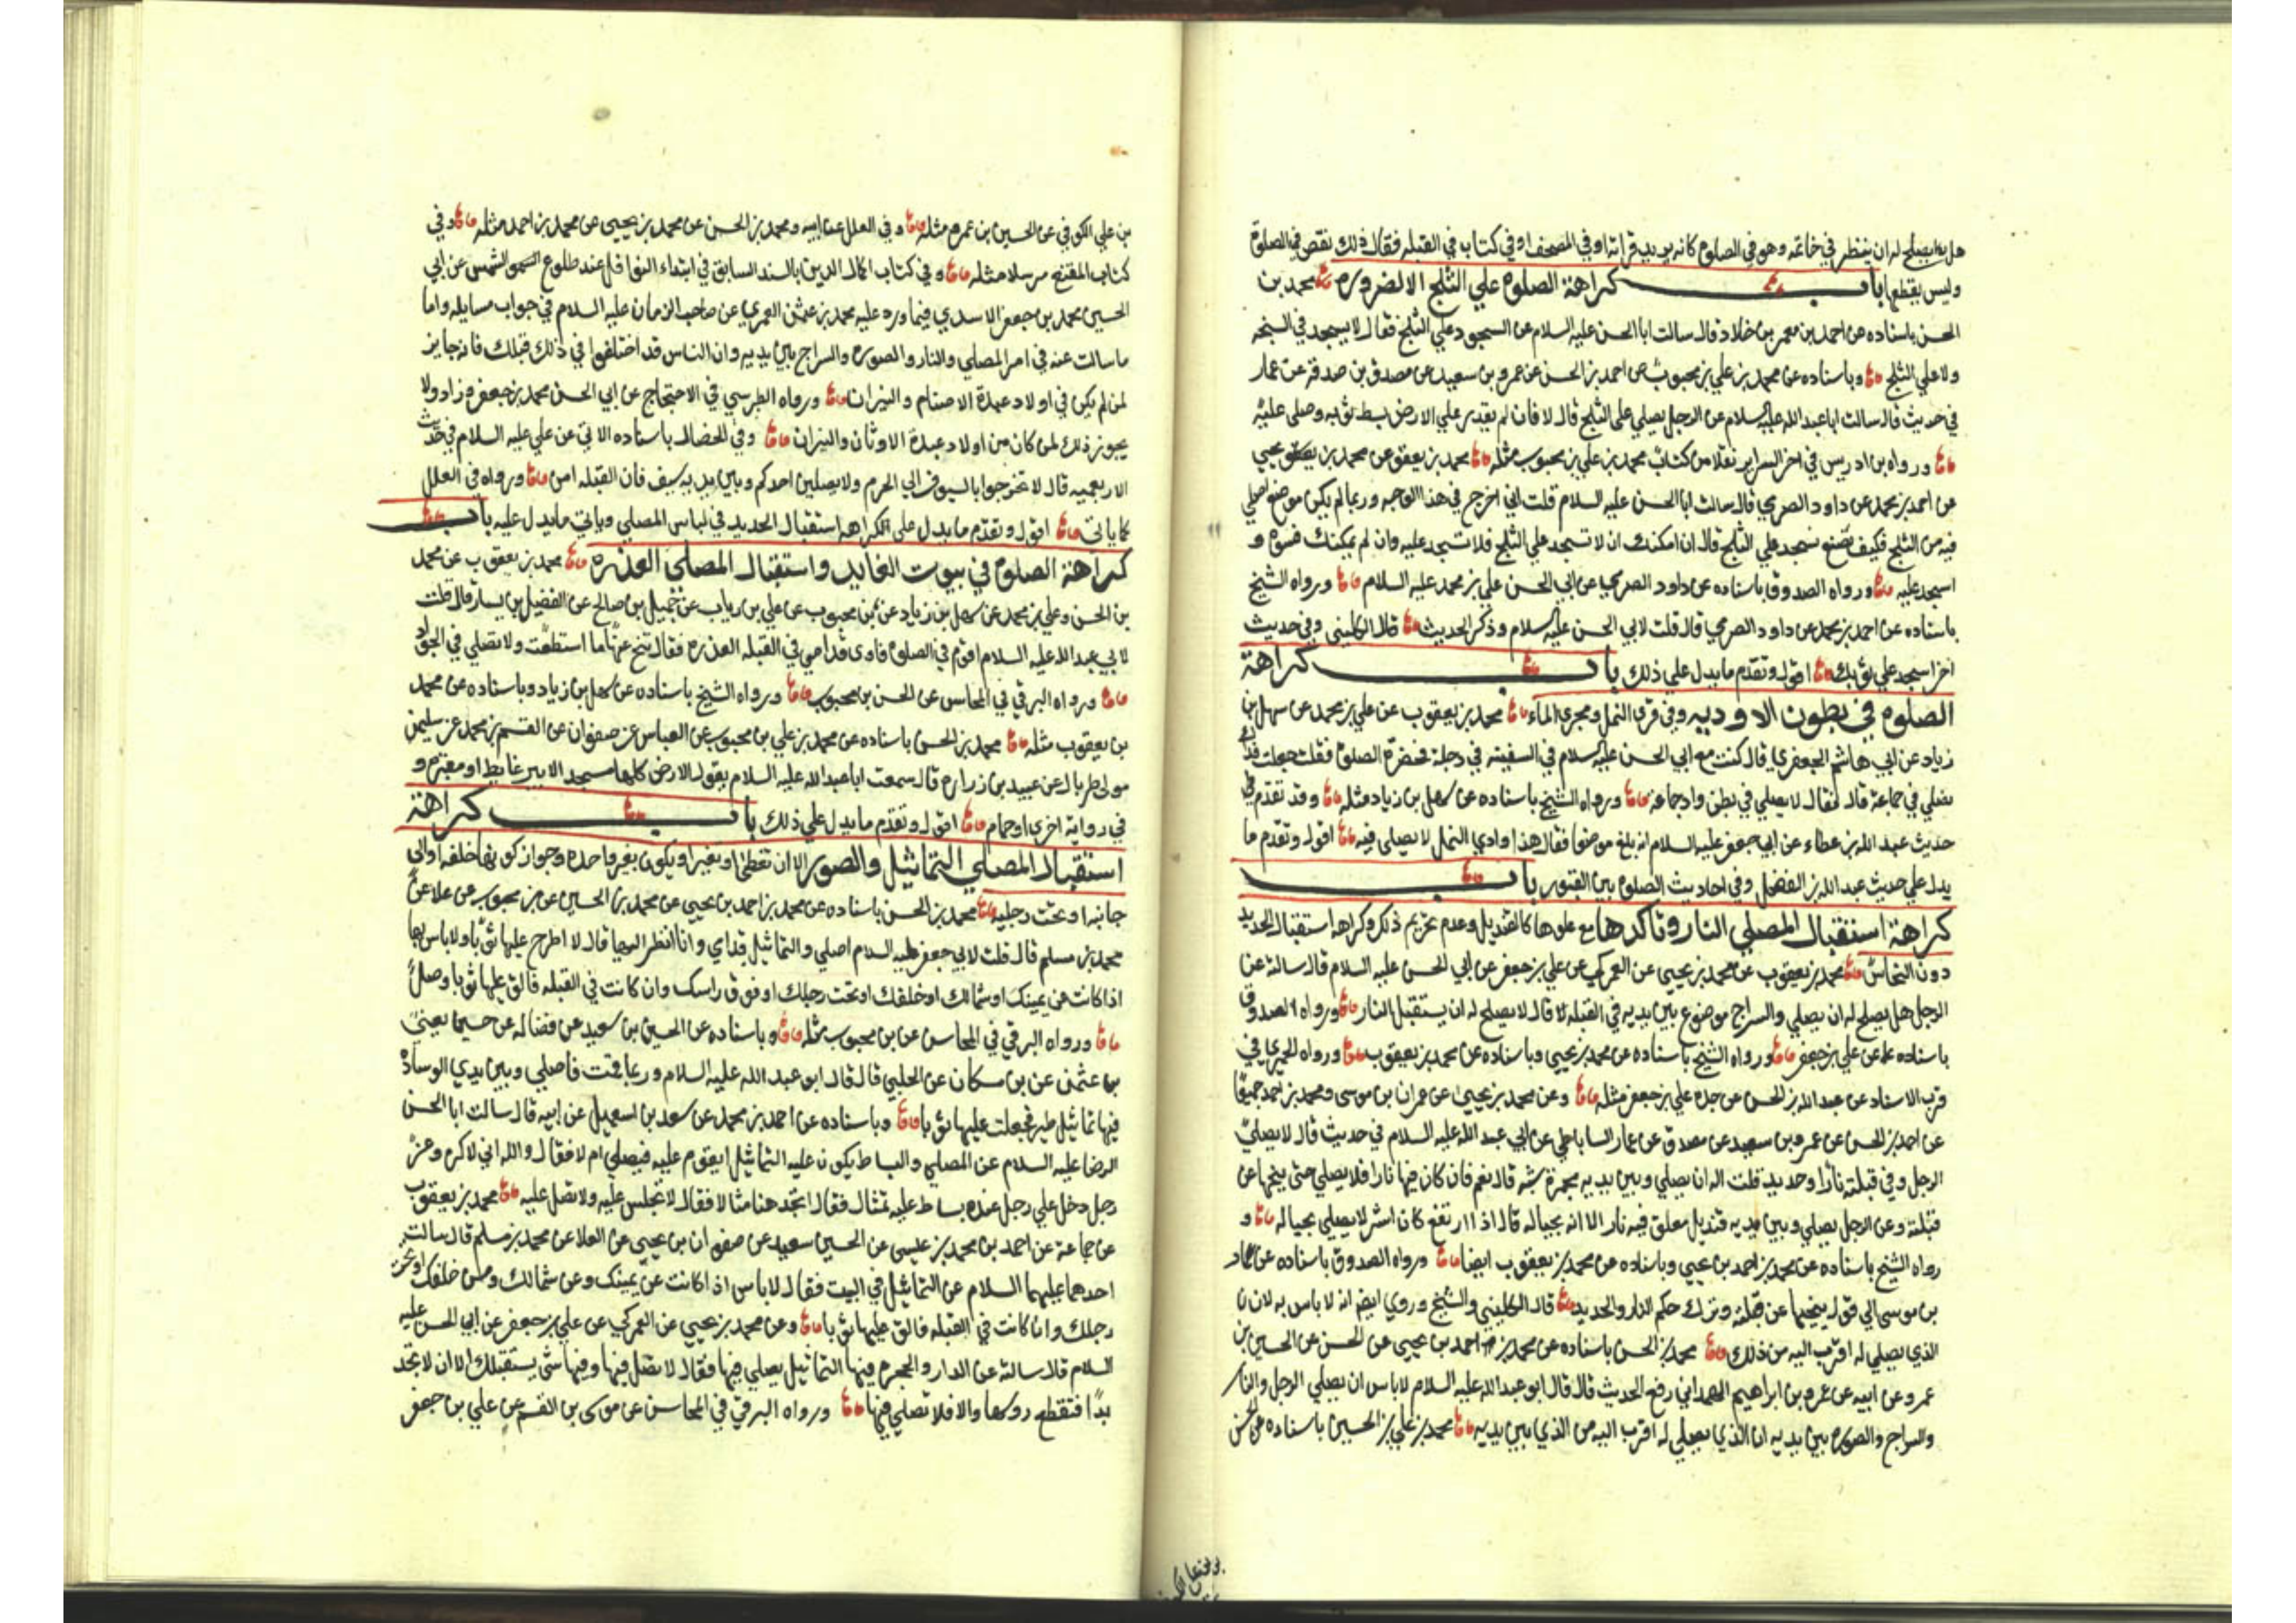 هل يصلح له ان ينظر في خاتمه وهو في الصلوة كانه يريد قراءته او في المصحف او في كتاب في القبله فقال ذلك نقص في الصلوة
وليس يقطعها باب كراهة الصلوة علي الثلج الا لضرورة محمد بن
الحسن باسناده عن احمد بن معمر بن خلاد قال سالت ابا الحسن عليه السلام عن السجود علي الثلج فقال لا يسجد في السبخه
ولا علي الثلج وباسناده عن محمد بن علي بن محبوب عن احمد بن الحسن عن عمرو بن سعيد عن مصدق بن صدقة عن عمار
في حديث قال سالت ابا عبد الله عليه السلام عن الرجل يصلي على الثلج قال لا فان لم يقدر علي الارض بسط ثوبه وصلى عليه
ورواه بن ادريس في اخر السراير نقلا من كتاب محمد بن علي بن محبوب مثله محمد بن يعقوب عن محمد بن يحيي
عن احمد بن محمد عن داود الصرمي قال سالت ابا الحسن عليه السلام قلت اني اخرج في هذا الوجه وربما لم يكن موضع اصلي
فيه من الثلج فكيف نصنع نسجد علي الثلج قال ان امكنك ان لا تسجد علي الثلج فلا تسجد عليه وان لم يمكنك فسوه و
اسجد عليه ورواه الصدوق باسناده عن داود الصرمي عن ابي الحسن علي بن محمد عليه السلام ورواه الشيخ
باسناده عن احمد بن محمد عن داود الصرمي قال قلت لابي الحسن عليه السلام وذكر الحديث قال الكليني وفي حديث
اخر اسجد علي ثوبك اقول وتقدم ما يدل علي ذلك باب كراهة
الصلوة في بطون الاوديه وفي قري النمل ومجري الماء محمد بن يعقوب عن علي بن محمد عن سهل بن
زياد عن ابي هاشم الجعفري قال كنت مع ابي الحسن عليه السلام في السفينه في دجلة فحضرت الصلوة فقلت جعلت فداك
نصلي في جماعة قال فقال لا يصلي في بطن واد جماعه ورواه الشيخ باسناده عن سهل بن زياد مثله وقد تقدم في
حديث عبد الله بن عطاء عن ابي جعفر عليه السلام انه بلغ موضعا فقال هذا وادي النمل لا يصلى فيه اقول وتقدم ما
يدل علي حديث عبد الله بن الفضل وفي احاديث الصلوة بين القبور باب
كراهة استقبال المصلي النار وتاكدها مع علوها كالقنديل وعدم تحريم ذلك وكراهة استقبال الحديد
دون النحاس محمد بن يعقوب عن محمد بن يحيي عن العمركي عن علي بن جعفر عن ابي الحسن عليه السلام قال سالته عن
الرجل هل يصلح له ان يصلي والسراج موضوع بين يديه في القبله قال لا يصلح له ان يستقبل النار ورواه الصدوق
باسناده عن علي بن جعفر ورواه الشيخ باسناده عن محمد بن يحيي وباسناده عن محمد بن يعقوب ورواه الحميري في
قرب الاسناد عن عبد الله بن الحسن عن جده علي بن جعفر مثله وعن محمد بن يحيي عن عمران بن موسى ومحمد بن احمد جميعا
عن احمد بن الحسن عن عمرو بن سعيد عن مصدق عن عمار الساباطي عن ابي عبد الله عليه السلام في حديث قال لا يصلي
الرجل وفي قبلته نار او حديد قلت اله ان يصلي وبين يديه مجمرة شبه قال نعم فان كان فيها نار فلا يصلي حتى ينحيها عن
قبلته وعن الرجل يصلي وبين يديه قنديل معلق فيه نار الا انه بحياله قال اذا ارتفع كان اشر لا يصلي بحياله و
رواه الشيخ باسناده عن محمد بن احمد بن يحيي وباسناده عن محمد بن يعقوب ايضا ورواه الصدوق باسناده عن عمار
بن موسى الي قوله ينحيها عن قبلته وترك حكم النار والحديد قال الكليني والشيخ وروي ايضم انه لا باس به لان
الذي يصلي له اقرب اليه من ذلك محمد بن الحسن باسناده عن محمد بن احمد بن يحيي عن الحسن عن الحسين بن
عمرو عن ابيه عن عمرو بن ابراهيم الهمداني رفع الحديث قال قال ابو عبد الله عليه السلام لا باس ان يصلي الرجل والنار
والسراج والصوره بين يديه ان الذي يصلي له اقرب اليه من الذي بين يديه محمد بن علي بن الحسين باسناده عن الحسن
بن علي الكوفي عن الحسين بن عمرو مثله وفي العلل عن ابيه ومحمد بن الحسن عن محمد بن يحيى عن محمد بن احمد مثله وفي
كتاب المقنع مرسلا مثله وفي كتاب اكمال الدين بالسند السابق في ابتداء النوافل عند طلوع الشمس عن ابي
الحسين محمد بن جعفر الاسدي فيما ورد عليه محمد بن عثمن العمري عن صاحب الزمان عليه السلام في جواب مسايله واما
ما سالت عنه في امر المصلي والنار والصوره والسراج بين يديه وان الناس قد اختلفوا في ذلك قبلك فانه جايز
لمن لم يكن في اولاد عبدة الاصنام والنيران ورواه الطبرسي في الاحتجاج عن ابي الحسن محمد بن جعفر وزاد ولا
يجوز ذلك لمن كان من اولاد عبدة الاوثان والنيران وفي الخصال باسناده الاتي عن علي عليه السلام في حديث
الاربعميه قال لا تخرجوا بالسيوف الي الحرم ولا يصلين احدكم وبين يديه سيف فان القبله امن ورواه في العلل
كما ياتي اقول وتقدم ما يدل على الكراهه استقبال الحديد في لباس المصلي وياتي ما يدل عليه باب
كراهة الصلوة في بيوت الغايط واستقبال المصلي العذره محمد بن يعقوب عن محمد
بن الحسن وعلي بن محمد عن سهل بن زياد عن بن محبوب عن علي بن رياب عن جميل بن صالح عن الفضيل بن يسار قال قلت
لابي عبد الله عليه السلام اقوم في الصلوة فاري قدامي في القبله العذره فقال تنح عنها ما استطعت ولا تصلي في الجواد
ورواه البرقي في المحاسن عن الحسن بن محبوب ورواه الشيخ باسناده عن سهل بن زياد وباسناده عن محمد
بن يعقوب مثله محمد بن الحسن باسناده عن محمد بن علي بن محبوب عن العباس عن صفوان عن القسم بن محمد عن سليمن
مولى طربال عن عبيد بن زراره قال سمعت ابا عبد الله عليه السلام يقول الارض كلها مسجد الا بير غايط او مقبره و
في رواية اخري او حمام اقول وتقدم ما يدل علي ذلك باب كراهة
استقبال المصلي التماثيل والصور الا ان تغطي او تغير او يكون بغير واحده وجواز كونها خلفه او الى
جانبه او تحت رجليه محمد بن الحسن باسناده عن محمد بن احمد بن يحيي عن محمد بن الحسين عن بن محبوب عن علا عن
محمد بن مسلم قال قلت لابي جعفر عليه السلام اصلي والتماثيل قدامي وانا انظر اليها قال لا اطرح عليها ثوبا ولا باس بها
اذا كانت عن يمينك او شمالك او خلفك او تحت رجلك او فوق راسك وان كانت في القبله فالق عليها ثوبا وصل
ورواه البرقي في المحاسن عن بن محبوب مثله وباسناده عن الحسين بن سعيد عن فضاله عن حسين يعني
بن عثمن عن بن مسكان عن الحلبي قال قال ابو عبد الله عليه السلام وربما قمت فاصلي وبين يدي الوسادة
فيها تماثيل طير فجعلت عليها ثوبا وباسناده عن احمد بن محمد عن سعد بن اسمعيل عن ابيه قال سالت ابا الحسن
الرضا عليه السلام عن المصلي والبساط يكون عليه التماثيل ايقوم عليه فيصلي ام لا فقال والله اني لاكره وعن
رجل دخل علي رجل عنده بساط عليه تمثال فقال اتجد هنا مثالا فقال لا تجلس عليه ولا تصل عليه محمد بن يعقوب
عن جماعة عن احمد بن محمد بن عيسى عن الحسين سعيد عن صفوان بن يحيى عن العلا عن محمد بن مسلم قال سالت
احدهما عليهما السلام عن التماثيل في البيت فقال لا باس اذا كانت عن يمينك وعن شمالك ومن خلفك او تحت
رجلك وان كانت في القبله فالق عليها ثوبا وعن محمد بن يحيي عن العمركي عن علي بن جعفر عن ابي الحسن عليه
السلام قال سالته عن الدار والحجره فيها التماثيل يصلي فيها فقال لا تصل فيها وفيها شي يستقبلك الا ان لا تجد
بدا فتقطع روسها والا فلا تصلي فيها ورواه البرقي في المحاسن عن موسى بن القسم عن علي بن جعفر